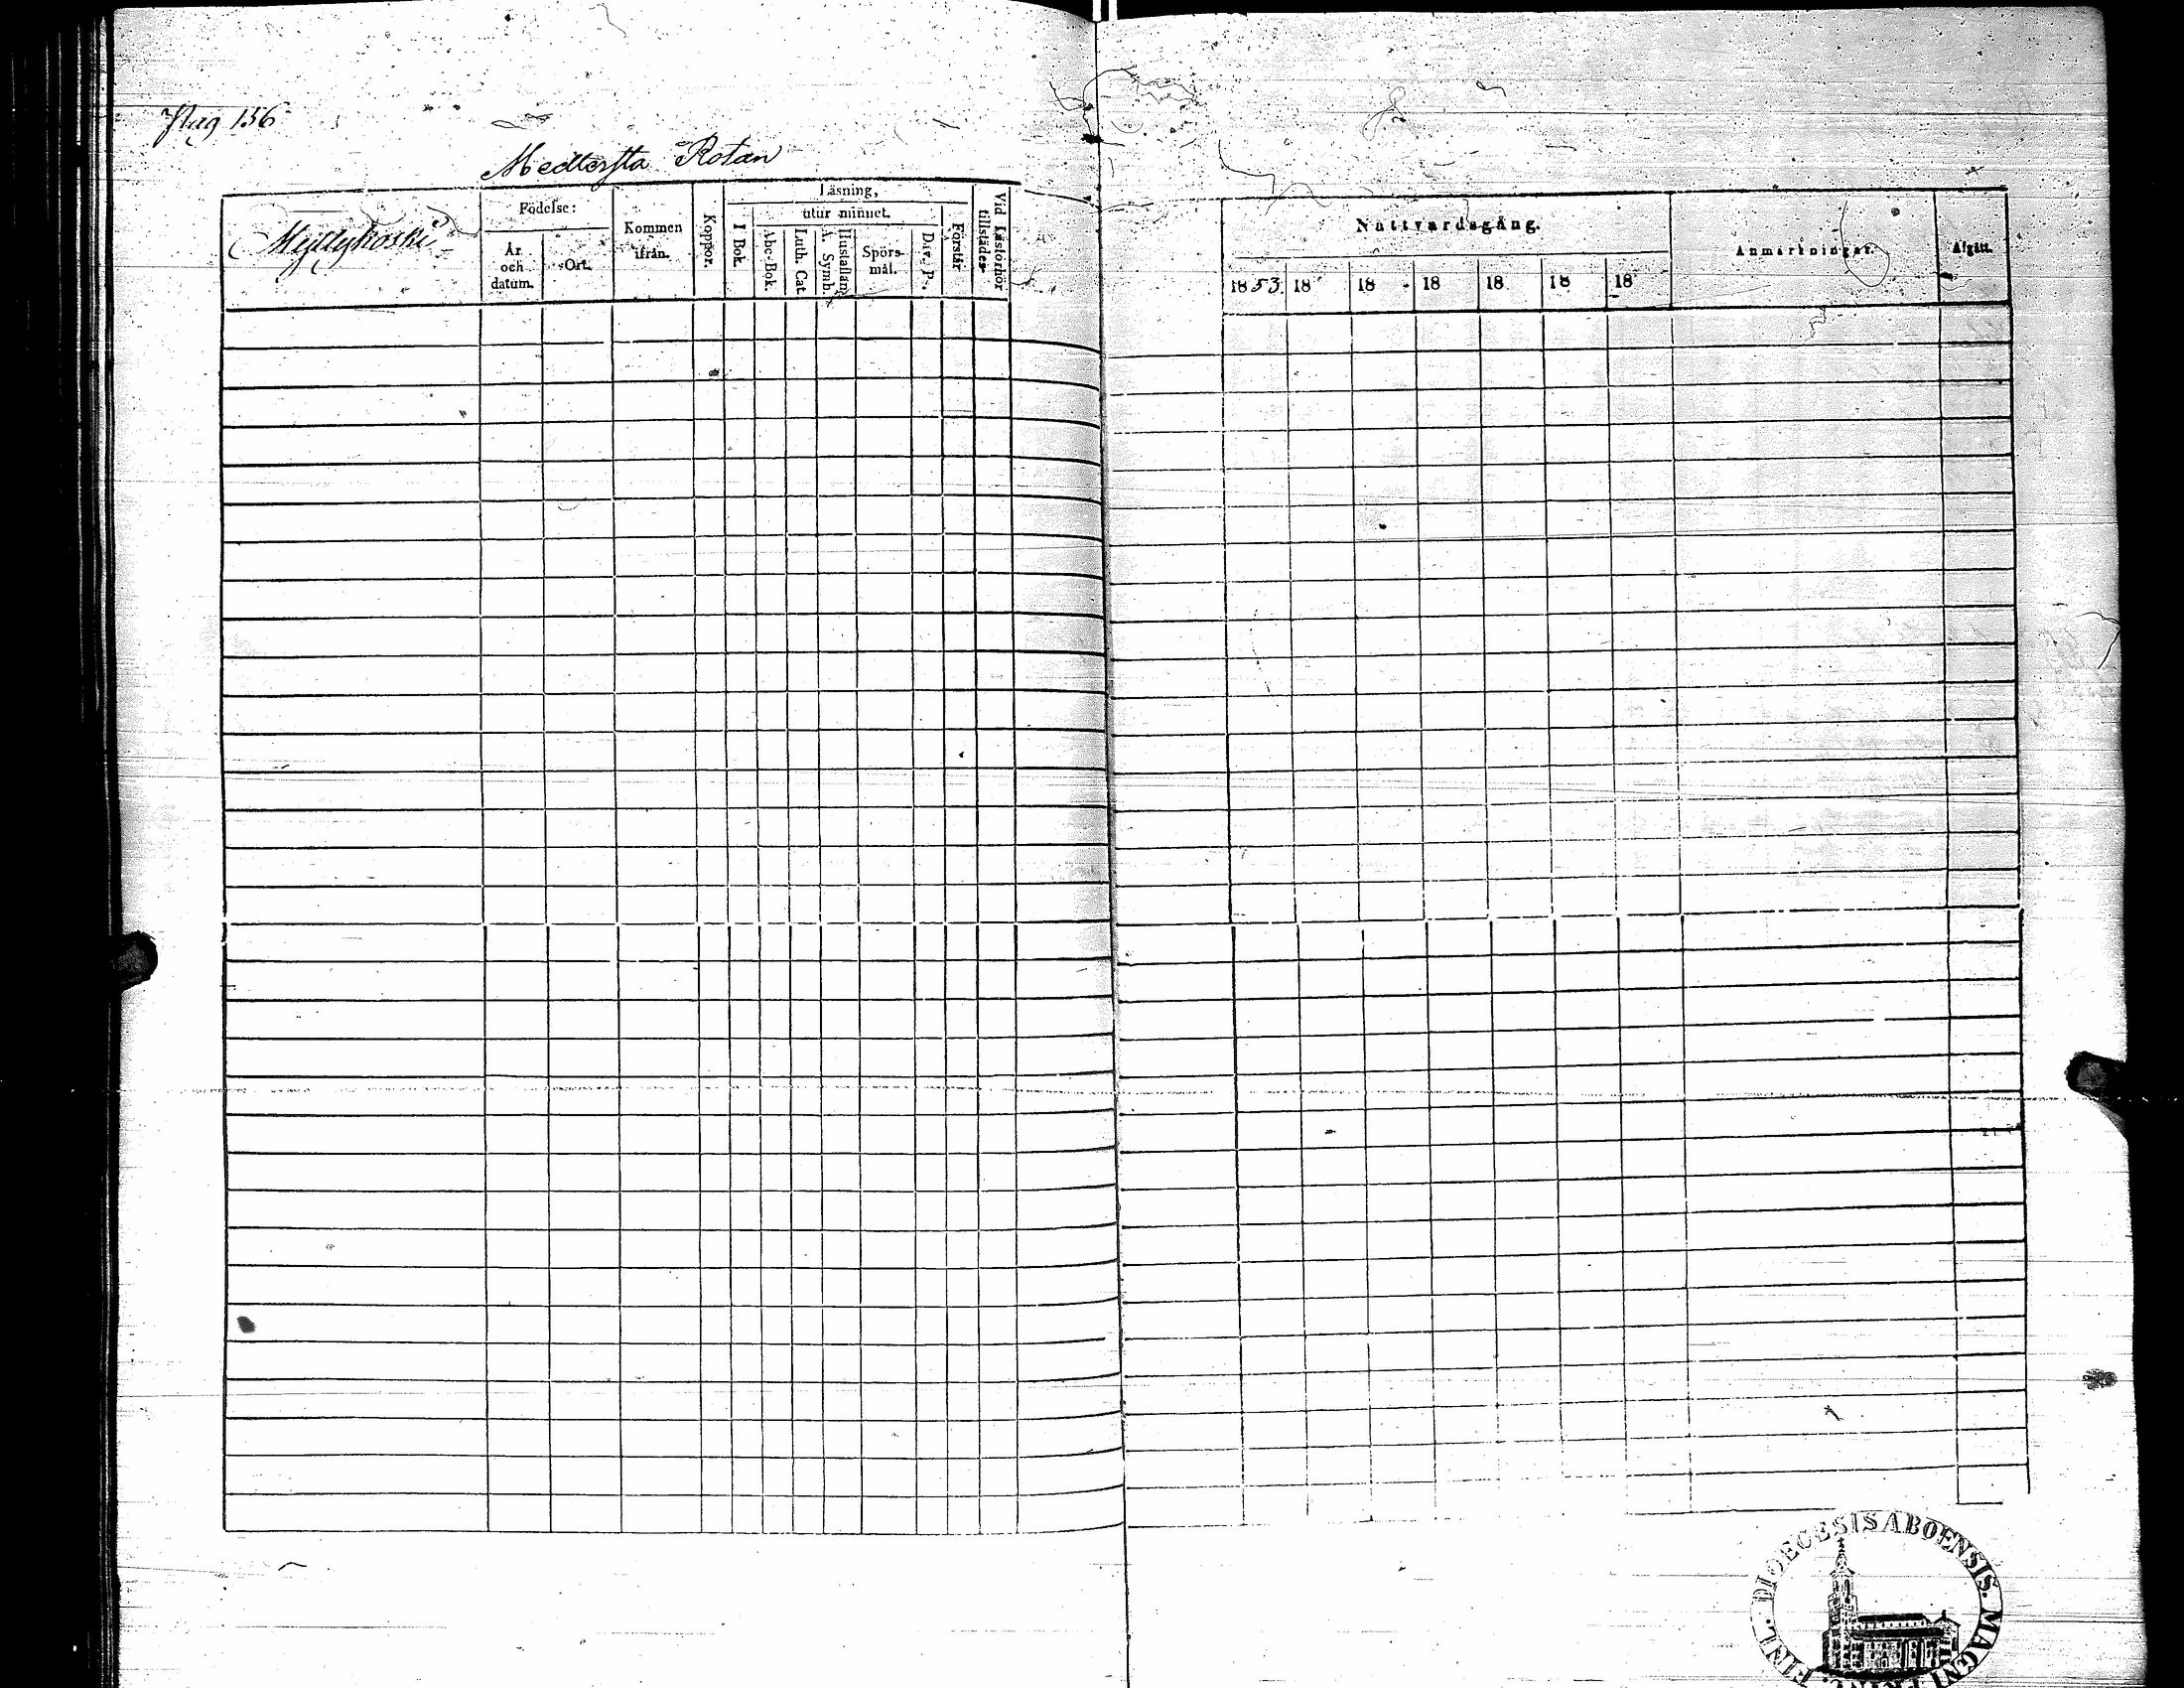 Pag 156
Medlersta Rotan
Myllykoski
Födelse:
År och datum.
Ort.
Kommen ifrån.
Koppor.
Läsning,
I Bok.
utur minnet.
Abc-Bok.
Luth. Cat.
Hustaflan
A. Symb.
Spörs-
mål.
Dav. Ps.
Förstår
Vid Läsförhör
tillstädes
Nattvardsgång.
1853. 18 18 18 18 18 18
Anmärkningar.
Afgått.
DIOECESIS ABOENSIS. MAGNI PRINC. FINL.